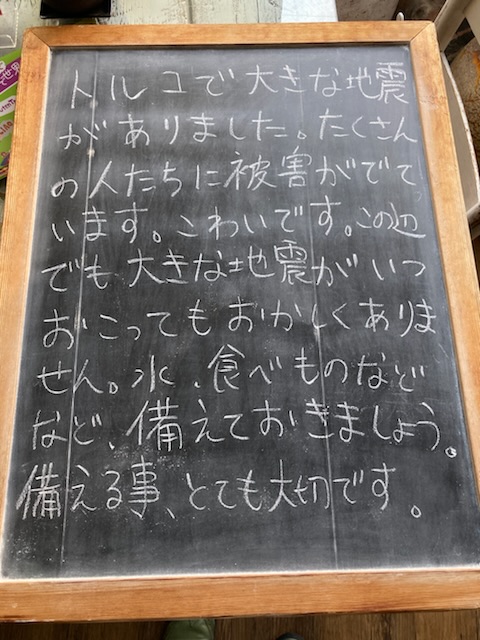 トルコで大きな地震
がありました。たくさん
の人たちに被害がでて
います。こわいです。この辺
でも大きな地震がいつ
おこってもおかしくありま
せん。水、食べものなど
など、備えておきましょう。
備える事、とても大切です。